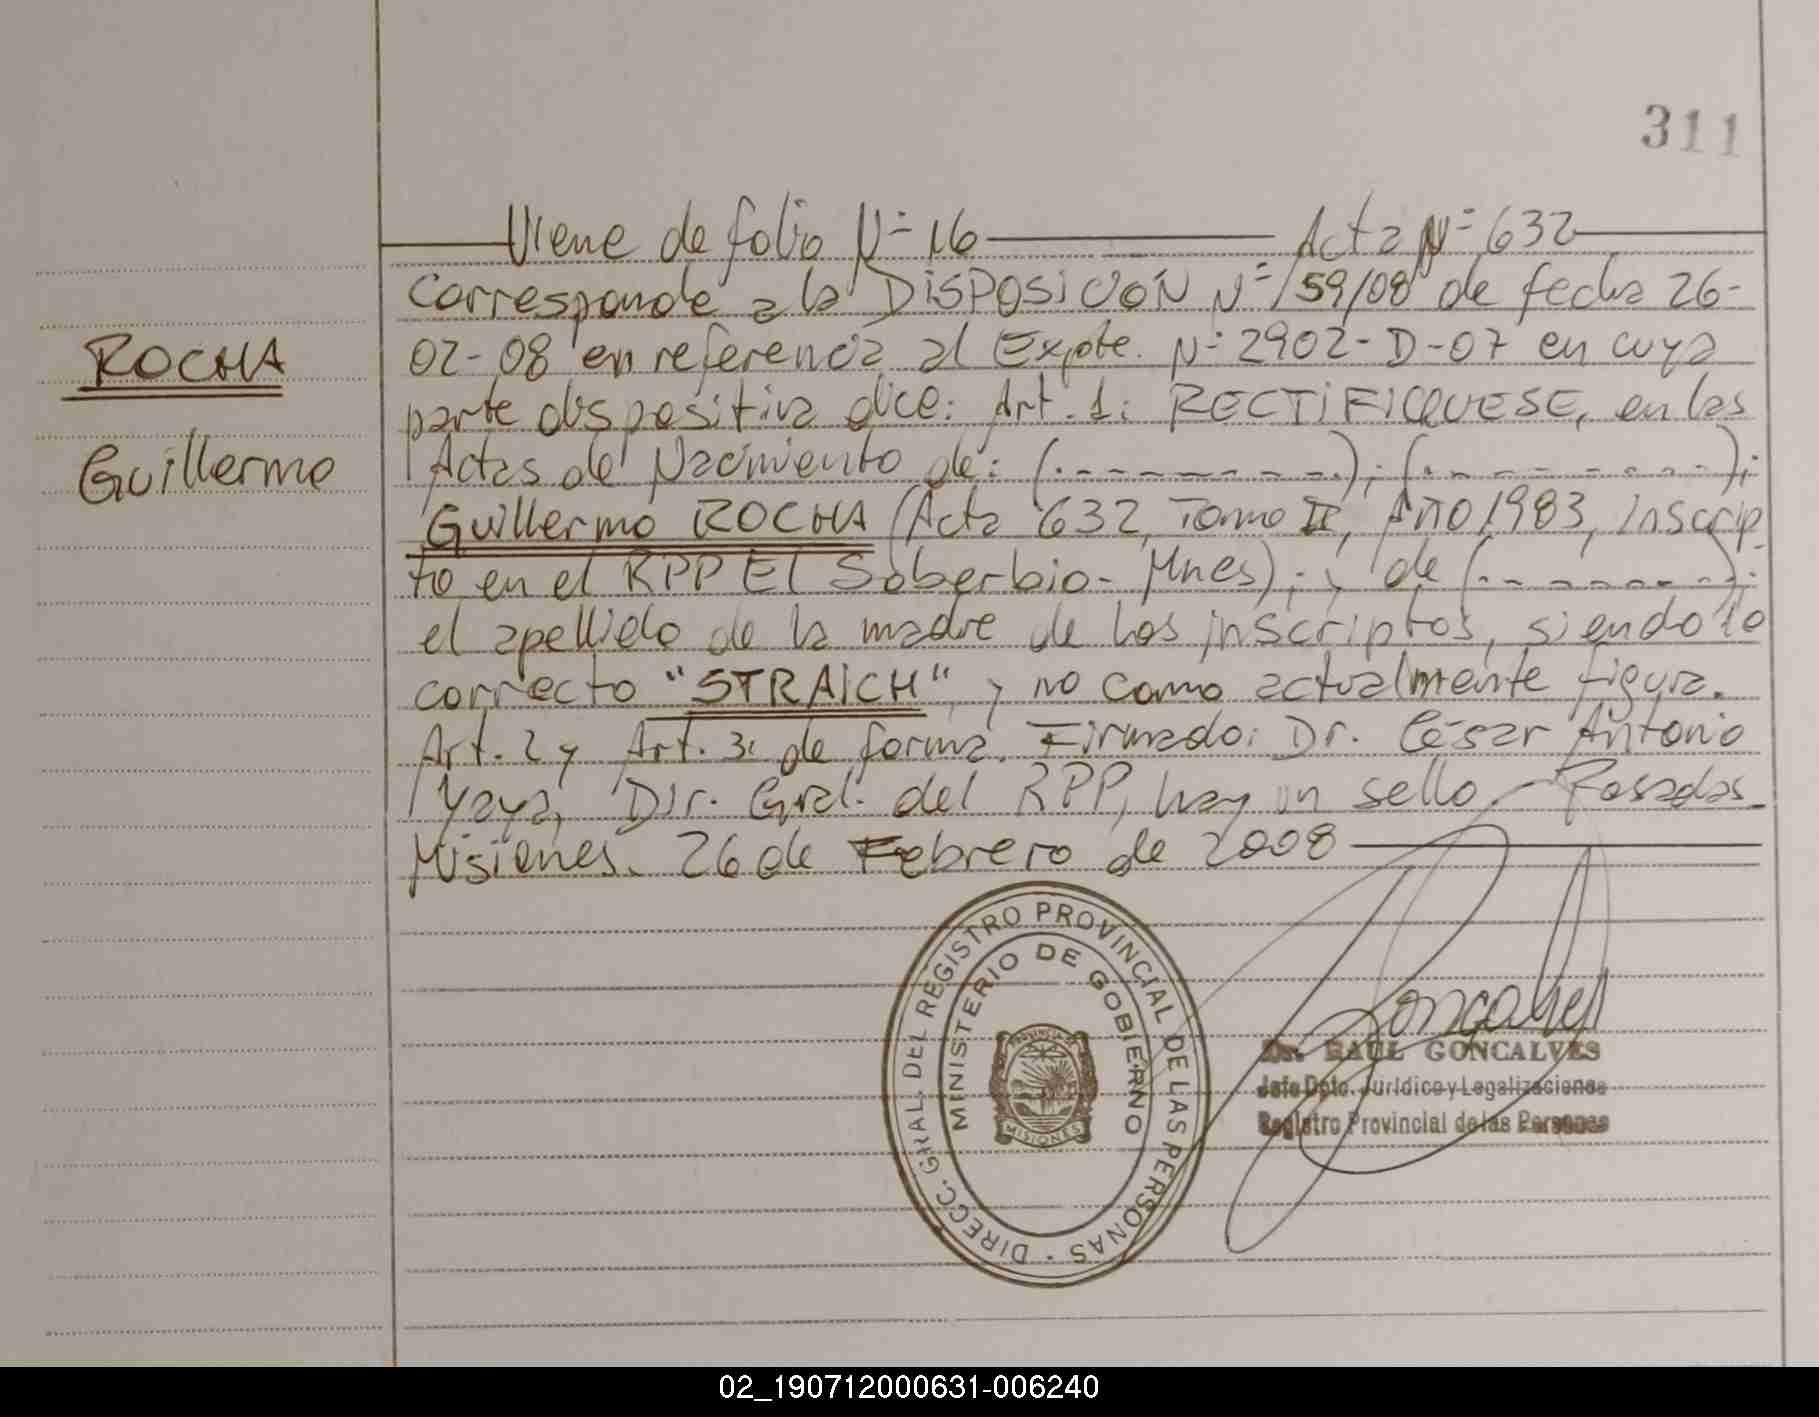 311
Viene de folio Nº 16 Acta Nº 632
Corresponde a la DISPOSICION Nº 159/08 de fecha 26-
ROCHA
02-08 en referencia al Expte. Nº 2902-D-07 en cuya
parte dispositiva dice: Art. 1: RECTIFIQUESE, en las
Guillermo
Actas de Nacimiento de: (.---------.); (.---------.);
Guillermo ROCHA (Acta 632, Tomo II, Año 1983, inscrip-
to en el RPP El Soberbio- Mnes); y de (.--------.);
el apellido de la madre de los inscriptos, siendo lo
correcto "STRAICH", y no como actualmente figura.
Art. 2 y Art. 3: de forma. Firmado: Dr. César Antonio
Yaya, Dir. Gral. del RPP, hay un sello - Posadas
Misiones. 26 de Febrero de 2008
DIRECC. GRAL. DEL REGISTRO PROVINCIAL DE LAS PERSONAS
MINISTERIO DE GOBIERNO
PROVINCIA DE
MISIONES
Goncalves
Dr. RAUL GONCALVES
Jefe Dpto. Jurídico y Legalizaciones
Registro Provincial de las Personas
02_190712000631-006240